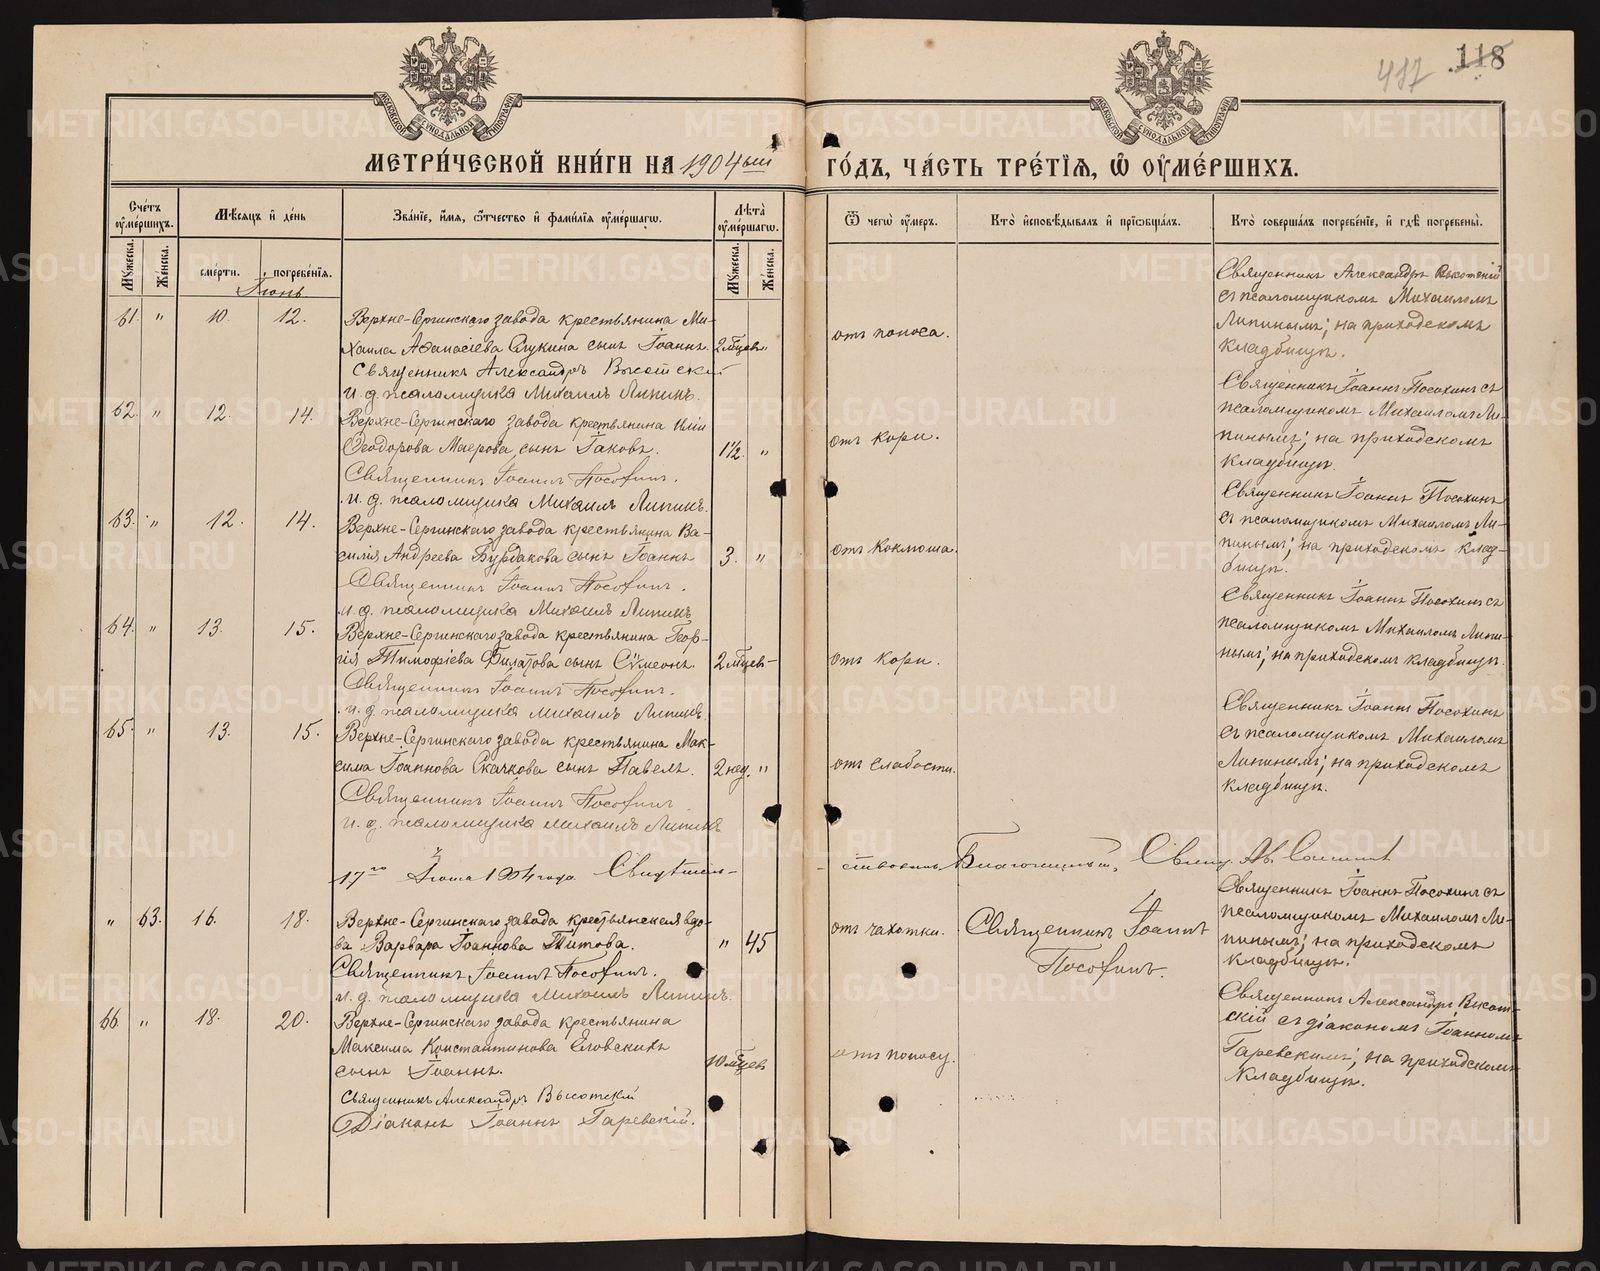 118
417
МОСКОВСКОЙ СѴНОДАЛЬНОЙ ТИПОГРАФІИ
МОСКОВСКОЙ СѴНОДАЛЬНОЙ ТИПОГРАФІИ
МЕТРИ́ЧЕСКОЙ КНИ́ГИ НА 1904ый ГО́ДЪ, ЧА́СТЬ ТРЕ́ТІѦ, Ѡ ОУМЕ́РШИХЪ.
Сче́тъ оуме́ршихъ.
Му́жеска.
Же́нска.
Мѣ́сѧцъ и де́нь
сме́рти.
погребе́нїѧ.
Іюнь
Зва́нїе, и́мѧ, ѻ́тчество и фами́лїѧ оуме́ршагѡ.
Лѣ́та оуме́ршагѡ.
Му́жеска.
Же́нска.
Ѿ чегѡ̀ оу́меръ.
Кто̀ и҆сповѣ́дывалъ и прїѡбща́лъ.
Кто̀ соверша́лъ погребе́нїе, и гдѣ̀ погребены̀.
61. " 10. 12.
Верхне-Сергинскаго завода крестьянина Ми-
хаила Аѳанасіева Слукина сынъ Іоаннъ. 2 мѣцев "
Священникъ Александръ Высотскій
и. д. псаломщика Михаилъ Липинъ.
отъ поноса.
Священникъ Александръ Высотскій
съ псаломщикомъ Михаиломъ
Липинымъ; на приходскомъ
кладбищѣ.
62. " 12. 14.
Верхне-Сергинскаго завода крестьянина Иліи
Ѳеодорова Маерова, сынъ Іаковъ. 1½. "
Священникъ Іоаннъ Посохинъ.
и. д. псаломщика Михаилъ Липинъ.
отъ кори.
Священникъ Іоаннъ Посохинъ съ
псаломщикомъ Михаиломъ Ли-
пинымъ; на приходскомъ
кладбищѣ.
63. " 12. 14.
Верхне-Сергинскаго завода крестьянина Ва-
силія Андреева Бурдакова сынъ Іоаннъ 3. "
Священникъ Іоаннъ Посохинъ.
и. д. псаломщика Михаилъ Липинъ
отъ коклюша.
Священникъ Іоаннъ Посохинъ
съ псаломщикомъ Михаиломъ Ли-
пинымъ; на приходскомъ клад-
бищѣ.
64. " 13. 15.
Верхне-Сергинскаго завода крестьянина Геор-
гія Тимофіева Филатова сынъ Сѵмеонъ. 2 мѣцев-
Священникъ Іоаннъ Посохинъ.
и. д. псаломщика Михаилъ Липинъ
отъ кори.
Священникъ Іоаннъ Посохинъ съ
псаломщикомъ Михаиломъ Липи-
нымъ; на приходскомъ кладбищѣ.
65. " 13. 15.
Верхне-Сергинскаго завода крестьянина Мак-
сима Іоаннова Скачкова сынъ Павелъ. 2 нед. "
Священникъ Іоаннъ Посохинъ.
и. д. псаломщика Михаилъ Липинъ
отъ слабости.
Священникъ Іоаннъ Посохинъ
съ псаломщикомъ Михаиломъ
Липинымъ; на приходскомъ
кладбищѣ.
17го 1904 года Свидѣтель-
ствовалъ Благочинный, Свящ.
" 63. 16. 18.
Верхне-Сергинскаго завода крестьянская вдо-
ва Варвара Іоаннова Титова. " 45
Священникъ Іоаннъ Посохинъ.
и. д. псаломщика Михаилъ Липинъ.
отъ чахотки.
Священникъ Іоаннъ
Посохинъ.
Священникъ Іоаннъ Посохинъ съ
псаломщикомъ Михаиломъ Ли-
пинымъ; на приходскомъ
кладбищѣ.
66 " 18. 20.
Верхне-Сергинскаго завода крестьянина
Максима Константинова Еговскихъ
сынъ Іоаннъ. 10 мѣцев
Священникъ Александръ Высотскій
Діаконъ Іоаннъ Гаревскій.
отъ поносу.
Священникъ Александръ Высот-
скій съ діакономъ Іоанномъ
Гаревскимъ; на приходскомъ
кладбищѣ.
METRIKI.GASO-URAL.RU